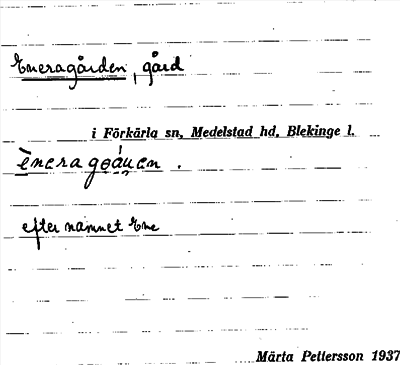 Eneragården, gård
i Förkärla sn, Medelstad hd, Blekinge l.
ènerago̯áu̯en.
efter namnet Ene
Märta Pettersson 1937